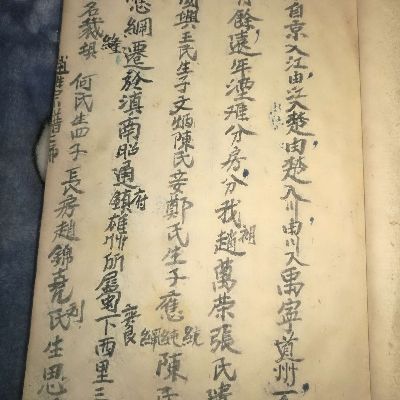 自京入江由江入楚由楚入川由川入禹寧道州
餘遠年湮难分房分我祖趙萬荣張氏
興王氏生子文炳陳氏妾鄭氏生子應統純綱陳
綱遷於滇南昭通府鎮雄州所属下西里三
名裁胡 何氏生四子長房趙錦堯氏生思